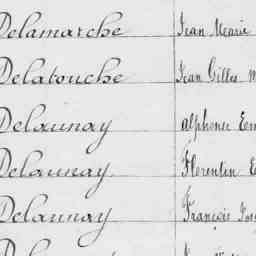 Delamarche Jean Marie
Delatouche Jean Gilles
Delaunay alphonse
Delaunay Florentin
Delaunay François